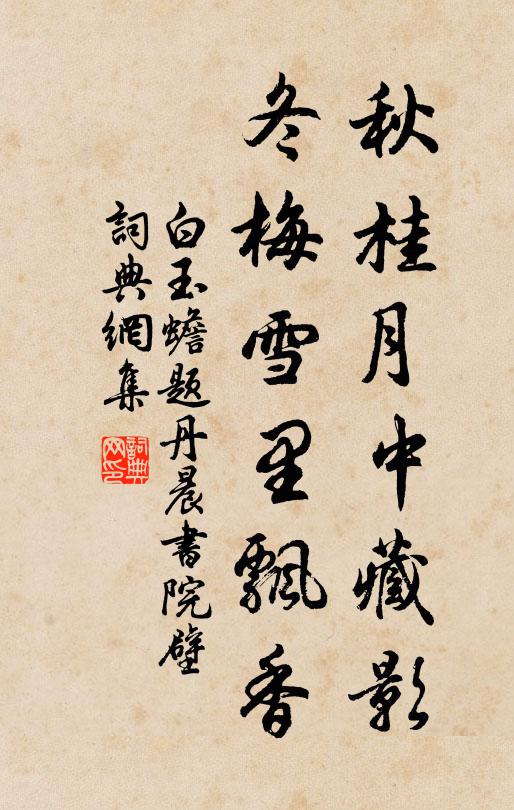 秋桂月中藏影
冬梅雪里飄香
白玉蟾題丹晨書院壁
詞典網集
詞典网印